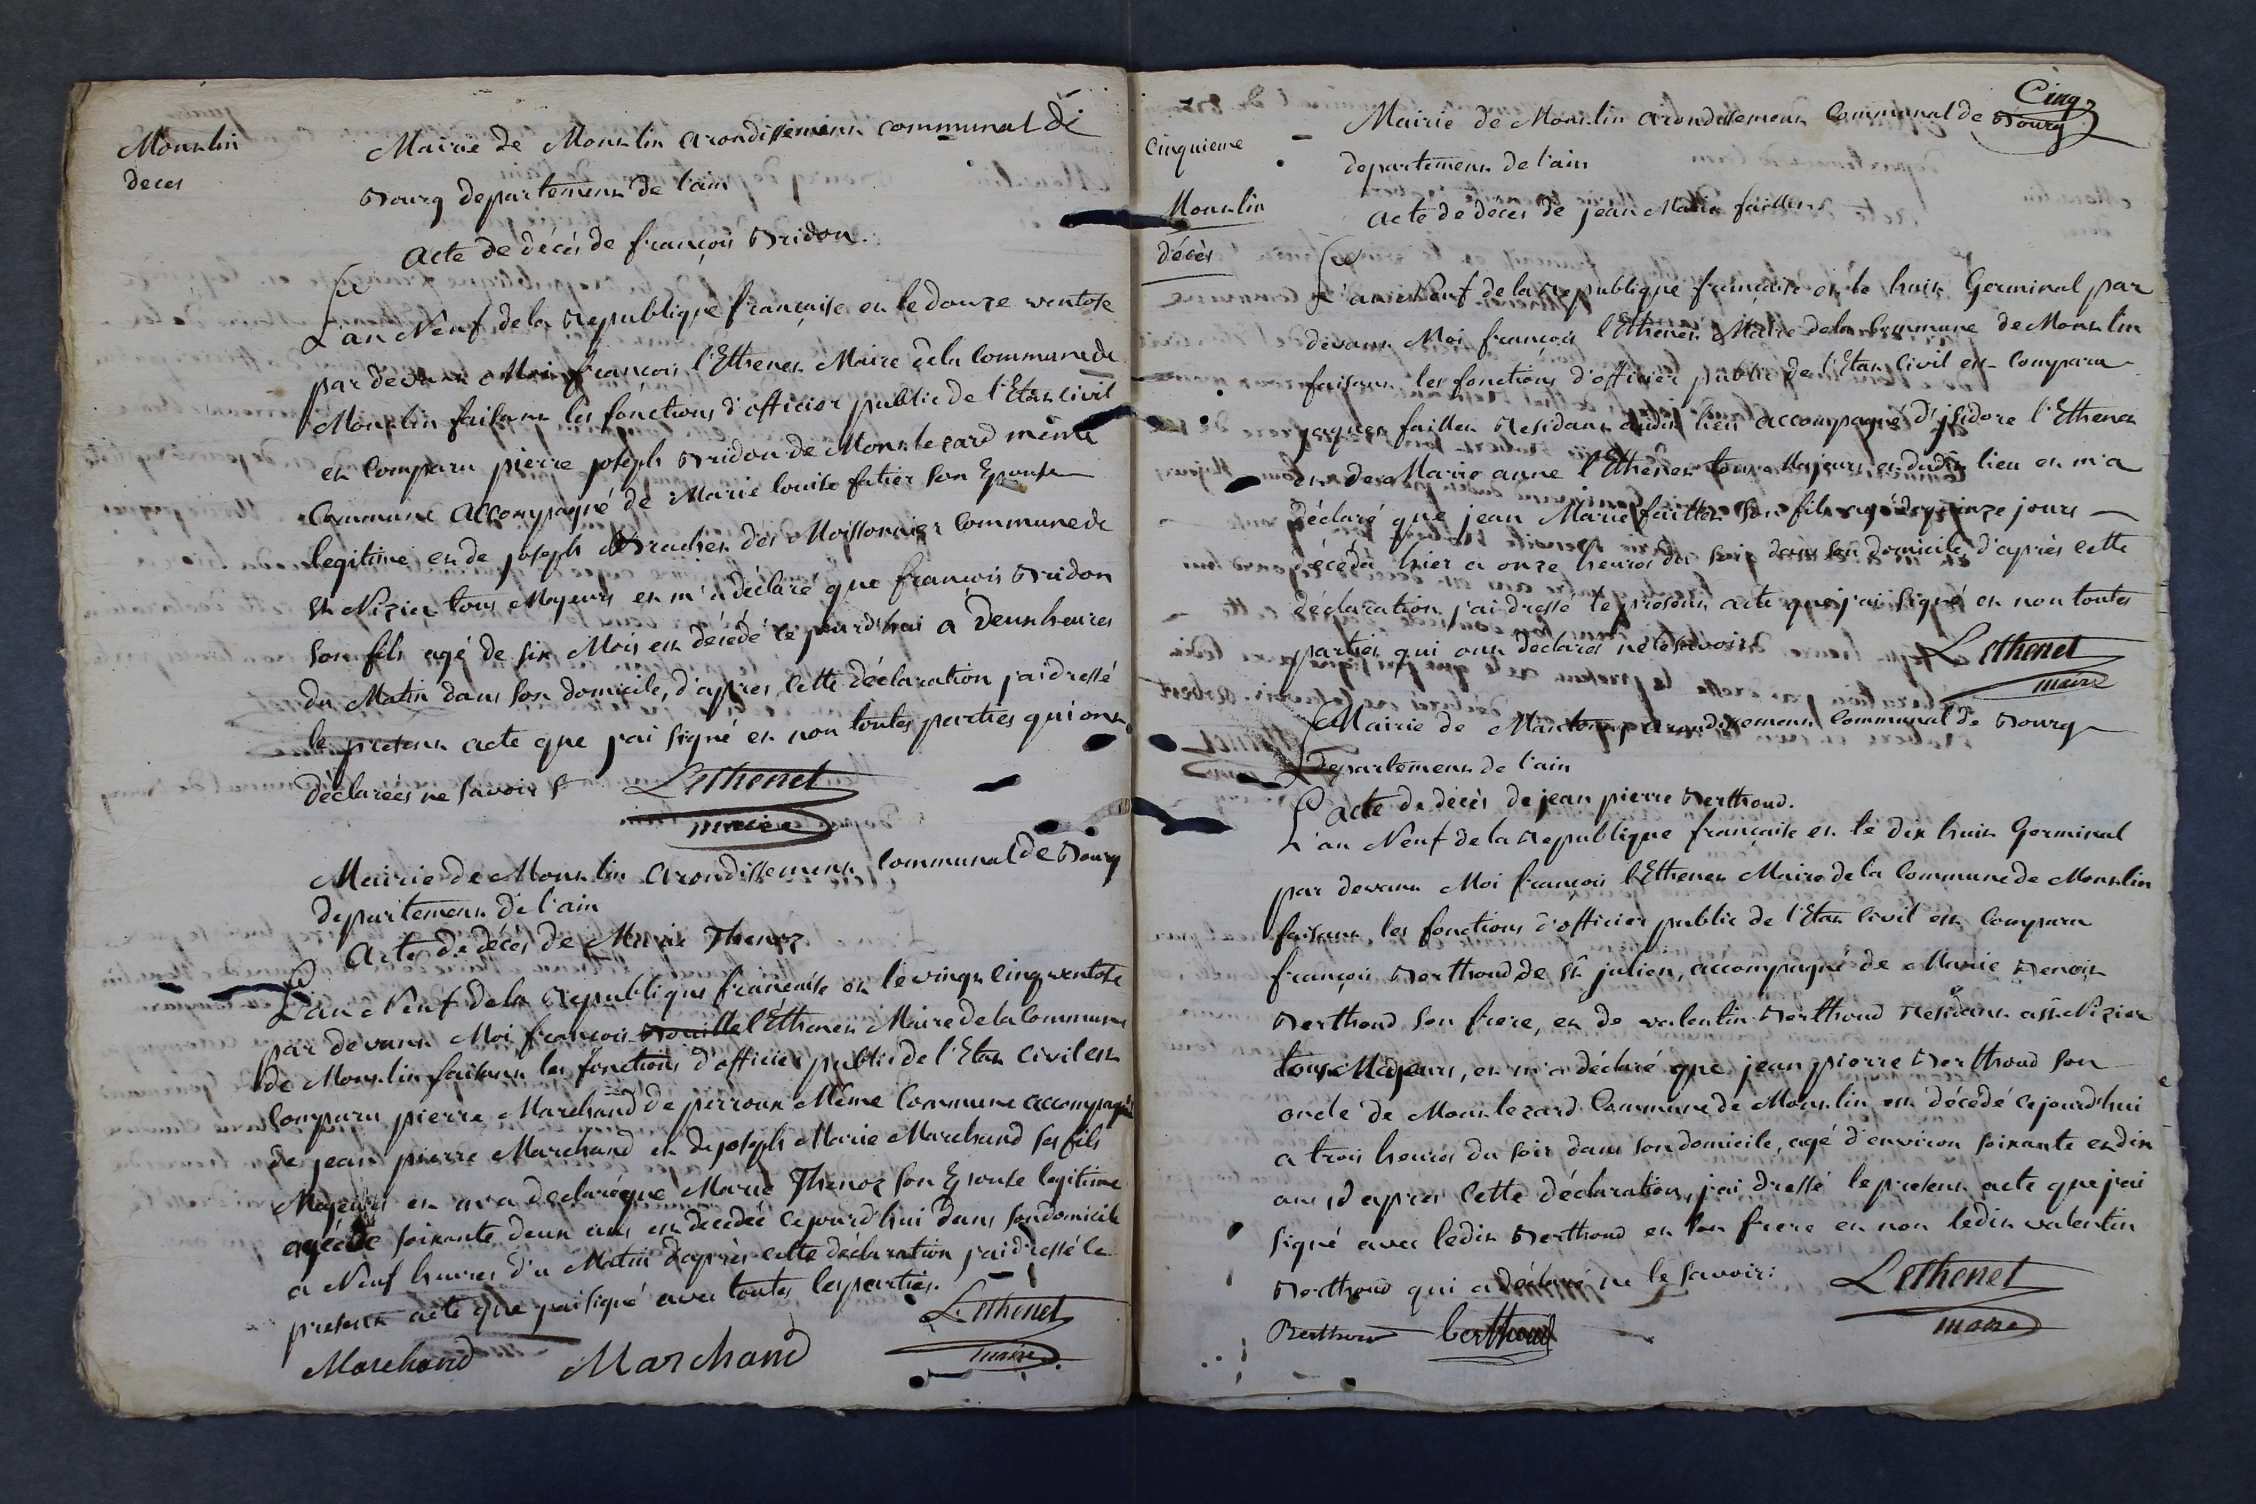 Montlin
deces
Mairie de Montlin arondissement communal de
Bourg departement de l'ain
acte de décès de françois Bridon.
L'an Neuf de la Republique française et le douze ventose
par devant Moi françois l'Ethenet Maire de la Commune de
Montlin faisant les fonctions d'officier public de l'Etat civil
est Comparu pierre joseph Bridon de Montlezard même
Commune accompagné de Marie louise fatier son Epouse
legitime et de joseph Brachet des Moissonnier Commune de
St Nizier tous Majeurs et m'a déclaré que françois Bridon
son fils agé de six Mois est décédé cejourd'hui a Deux heures
du Matin dans son domicile, d'après cette déclaration j'ai dressé
le present acte que j'ai signé et non toutes parties qui ont
déclarées ne savoir
Lethenet
maire
Mairie de Montlin arondissement Communal de Bourg
departement de l'ain
acte de décès de Marie Thenoz
L'an Neuf de la Republique française et le vingt cinq ventose
par devant Moi françois l'Ethenet Maire de la Commune
de Montlin faisant les fonctions d'officier public de l'Etat Civil est
Comparu pierre Marchand de perroux Même Commune accompagné
de jean pierre Marchand et de joseph Marie Marchand ses fils
Majeurs et m'a declaré que Marie Thenoz son Epouse legitime
agée de soixante deux ans est décédée cejourd'hui dans son domicile
a Neuf heures du Matin d'après cette déclaration j'ai dressé le
present acte que j'ai signé avec toutes les parties.
Lethenet
maire
Marchand Marchand
Cinq
cinquieme
Montlin
décès
Mairie de Montlin arondissement Communal de Bourg
departement de l'ain
acte de deces de jean Marie faillet
L'an Neuf de la Republique française et le huit Germinal par
devant Moi françois l'Ethenet Maire de la Commune de Montlin
faisant les fonctions d'officier public de l'Etat Civil est Comparu
jaques faillet Residant audit lieu accompagné d'jsidore l'Ethenet
et de Marie anne l'Ethenet tous Majeurs et dudit lieu et m'a
déclaré que jean Marie faillet son fils agé de quinze jours
décéda hier a onze heures du soir dans son domicile, d'après cette
déclaration j'ai dressé le present acte que j'ai signé et non toutes
parties qui ont declarés ne le savoir.
Lethenet
maire
Mairie de Montlin arondissement Communal de Bourg
departement de l'ain
acte de décès de jean pierre Berthoud.
L'an Neuf de la Republique française et le dix huit Germinal
par devant Moi françois l'Ethenet Maire de la Commune de Montlin
faisant les fonctions d'officier public de l'Etat Civil est Comparu
françois Berthoud de St julien, accompagné de Marie Benoit
Berthoud son frere, et de valentin Berthoud Résidant a St Nizier
tous Majeurs, et m'a déclaré que jean pierre Berthoud son
oncle de Montlezard Commune de Montlin est décédé cejourd'hui
a trois heures du soir dans son domicile, agé d'environ soixante et dix
ans, d'après Cette déclaration, j'ai dressé le present acte que j'ai
signé avec ledit Berthoud et son frere et non ledit valentin
Berthoud qui a déclaré ne le savoir:
Lethenet
maire
Berthoud berthoud